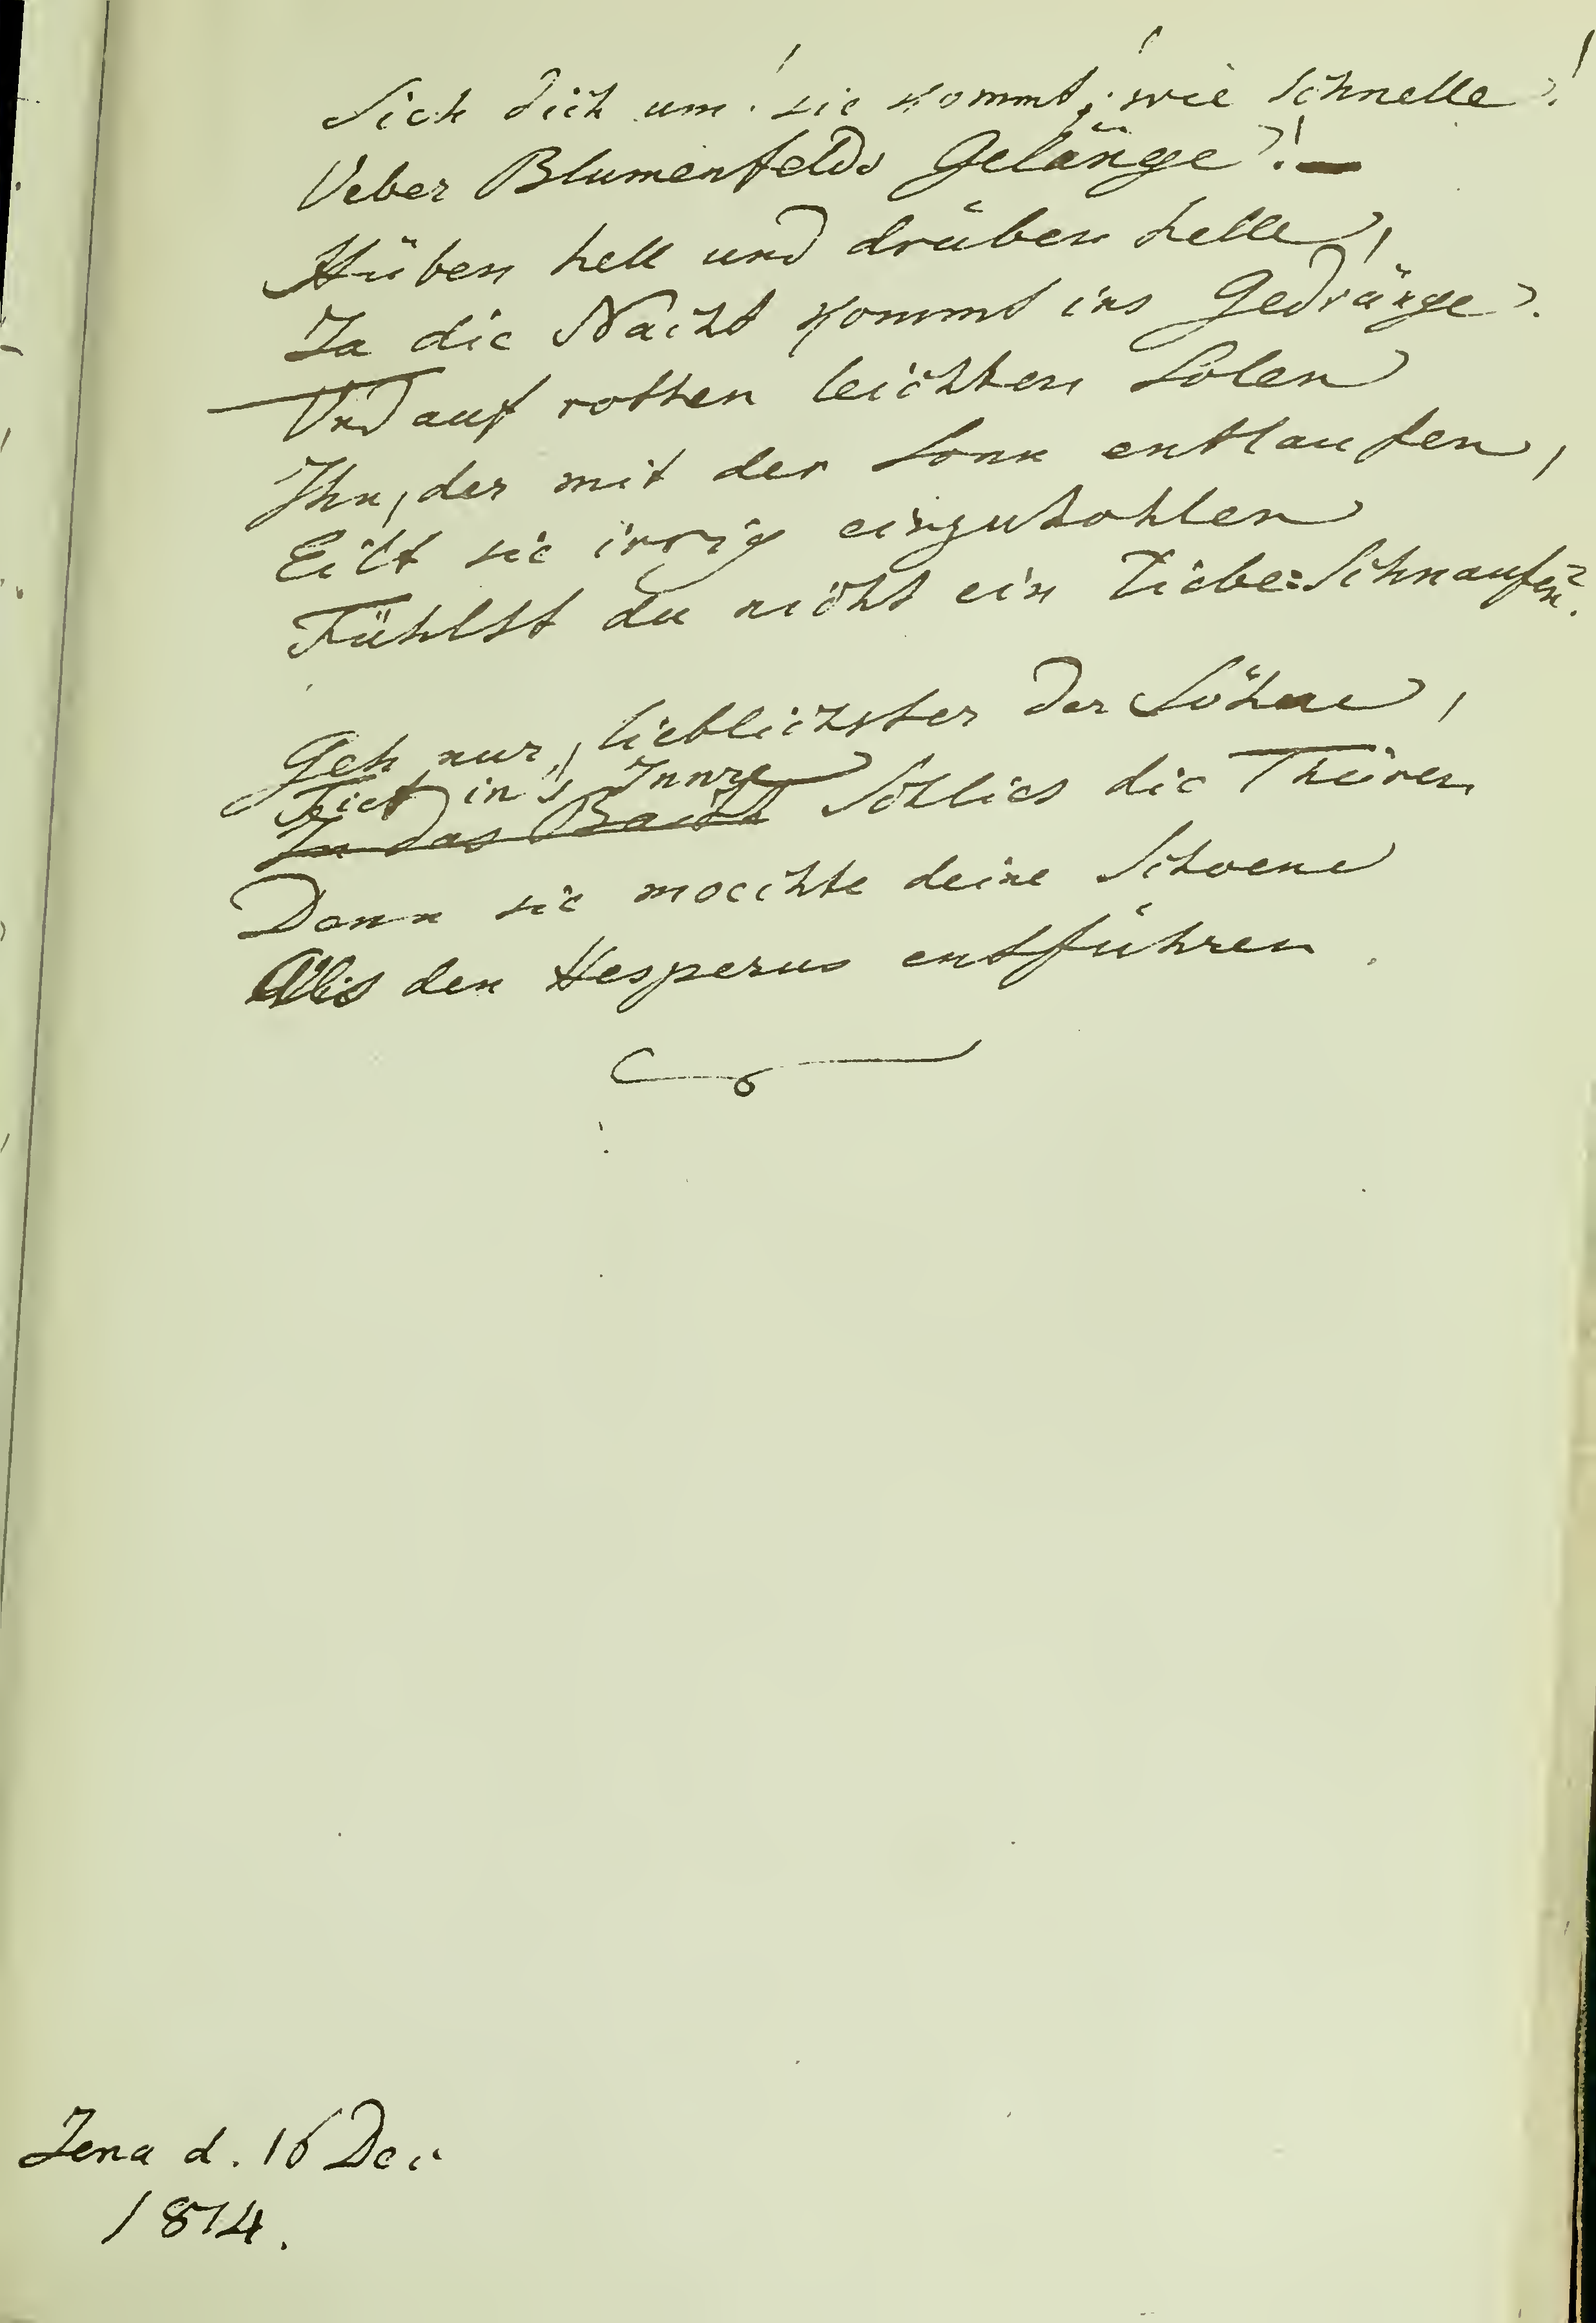 Sieh dich um! sie kommt! wie schnelle!
Ueber Blumenfelds Gelänge! —
Hüben hell und drüben helle,
Ja die Nacht kommt ins Gedränge.
Und auf rothen leichten Solen
Ihn, der mit der Sonn entlaufen,
Eilt sie irrig einzuhohlen
Fühlst du nicht ein Liebe=Schnaufen?
Geh nur, lieblichster der Söhne,
Tief in's Innre
In das Schlies die Thüren
Denn sie moechte deine Schoene
Als den Hesperus entführen.
Jena d. 16 Dec
1814.